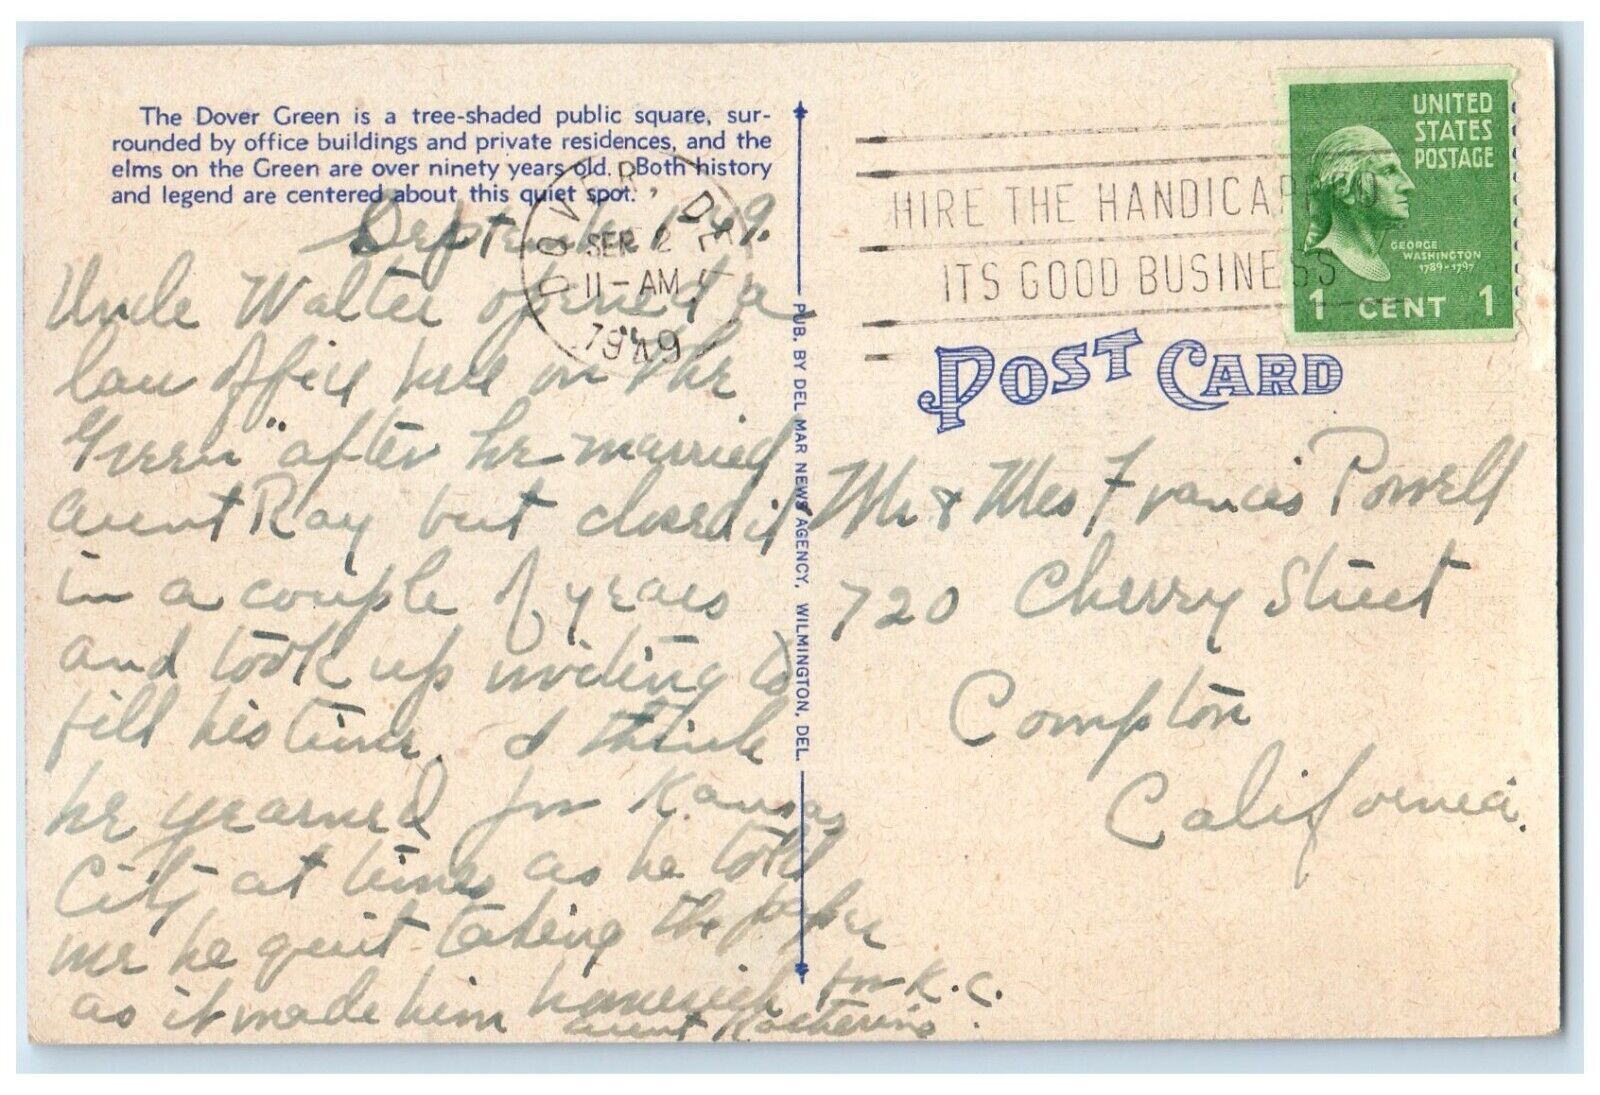 The Dover Green is a tree-shaded public square, sur-
rounded by office buildings and private residences, and the
elms on the Green are over ninety years old. Both history
and legend are centered about this quiet spot.
September 1, 49.
Uncle Walter opened a
law office here on "the
Green" after he married
Aunt Ray but closed it
in a couple of years
and took up writing to
fill his time. I think
he yearned for Kansas
City at times as he told
me he quit taking the paper
as it made him homesick for K.C.
Aunt Katherine
PUB. BY DEL MAR NEWS AGENCY, WILMINGTON, DEL.
DOVER, DEL.
SEP 2
11-AM
1949
HIRE THE HANDICAPP
ITS GOOD BUSINESS
UNITED
STATES
POSTAGE
GEORGE
WASHINGTON
1789-1797
1 CENT 1
POST CARD
Mr & Mrs Francis Powell
720 Cherry Street
Compton
California.